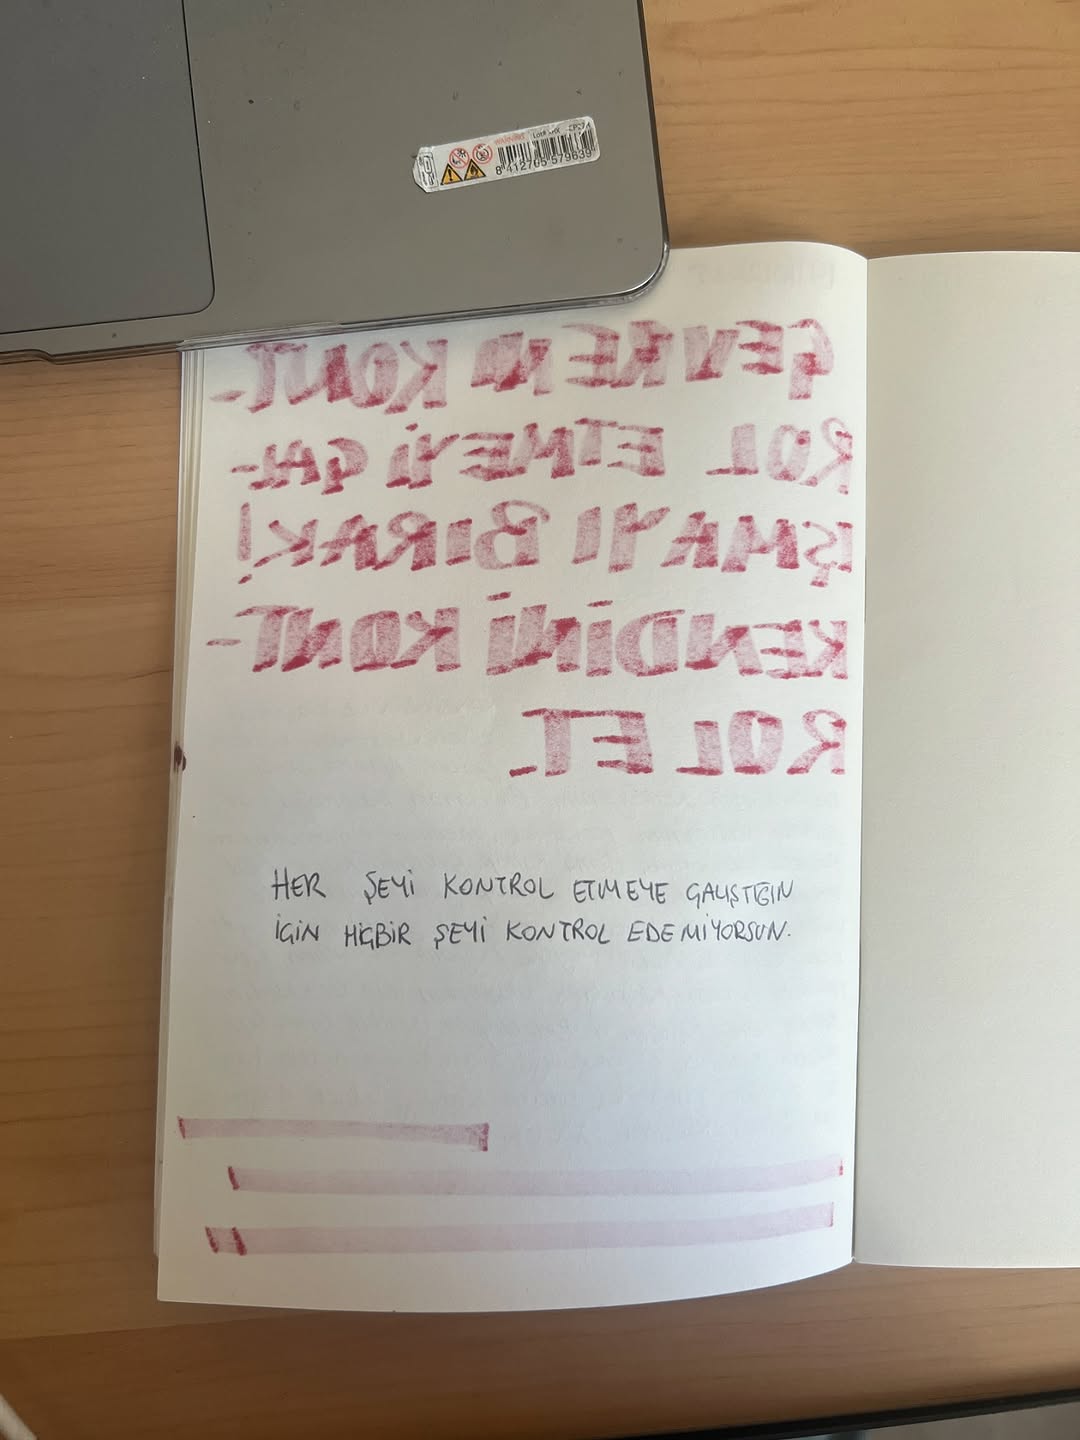 WARNING
8 412765 579639
ÇEVRENİ KONT-
ROL ETMEYİ ÇAL-
IŞMAYI BIRAK!
KENDİNİ KONT-
ROL ET.
HER ŞEYİ KONTROL ETMEYE ÇALIŞTIĞIN
İÇİN HİÇBİR ŞEYİ KONTROL EDEMİYORSUN.